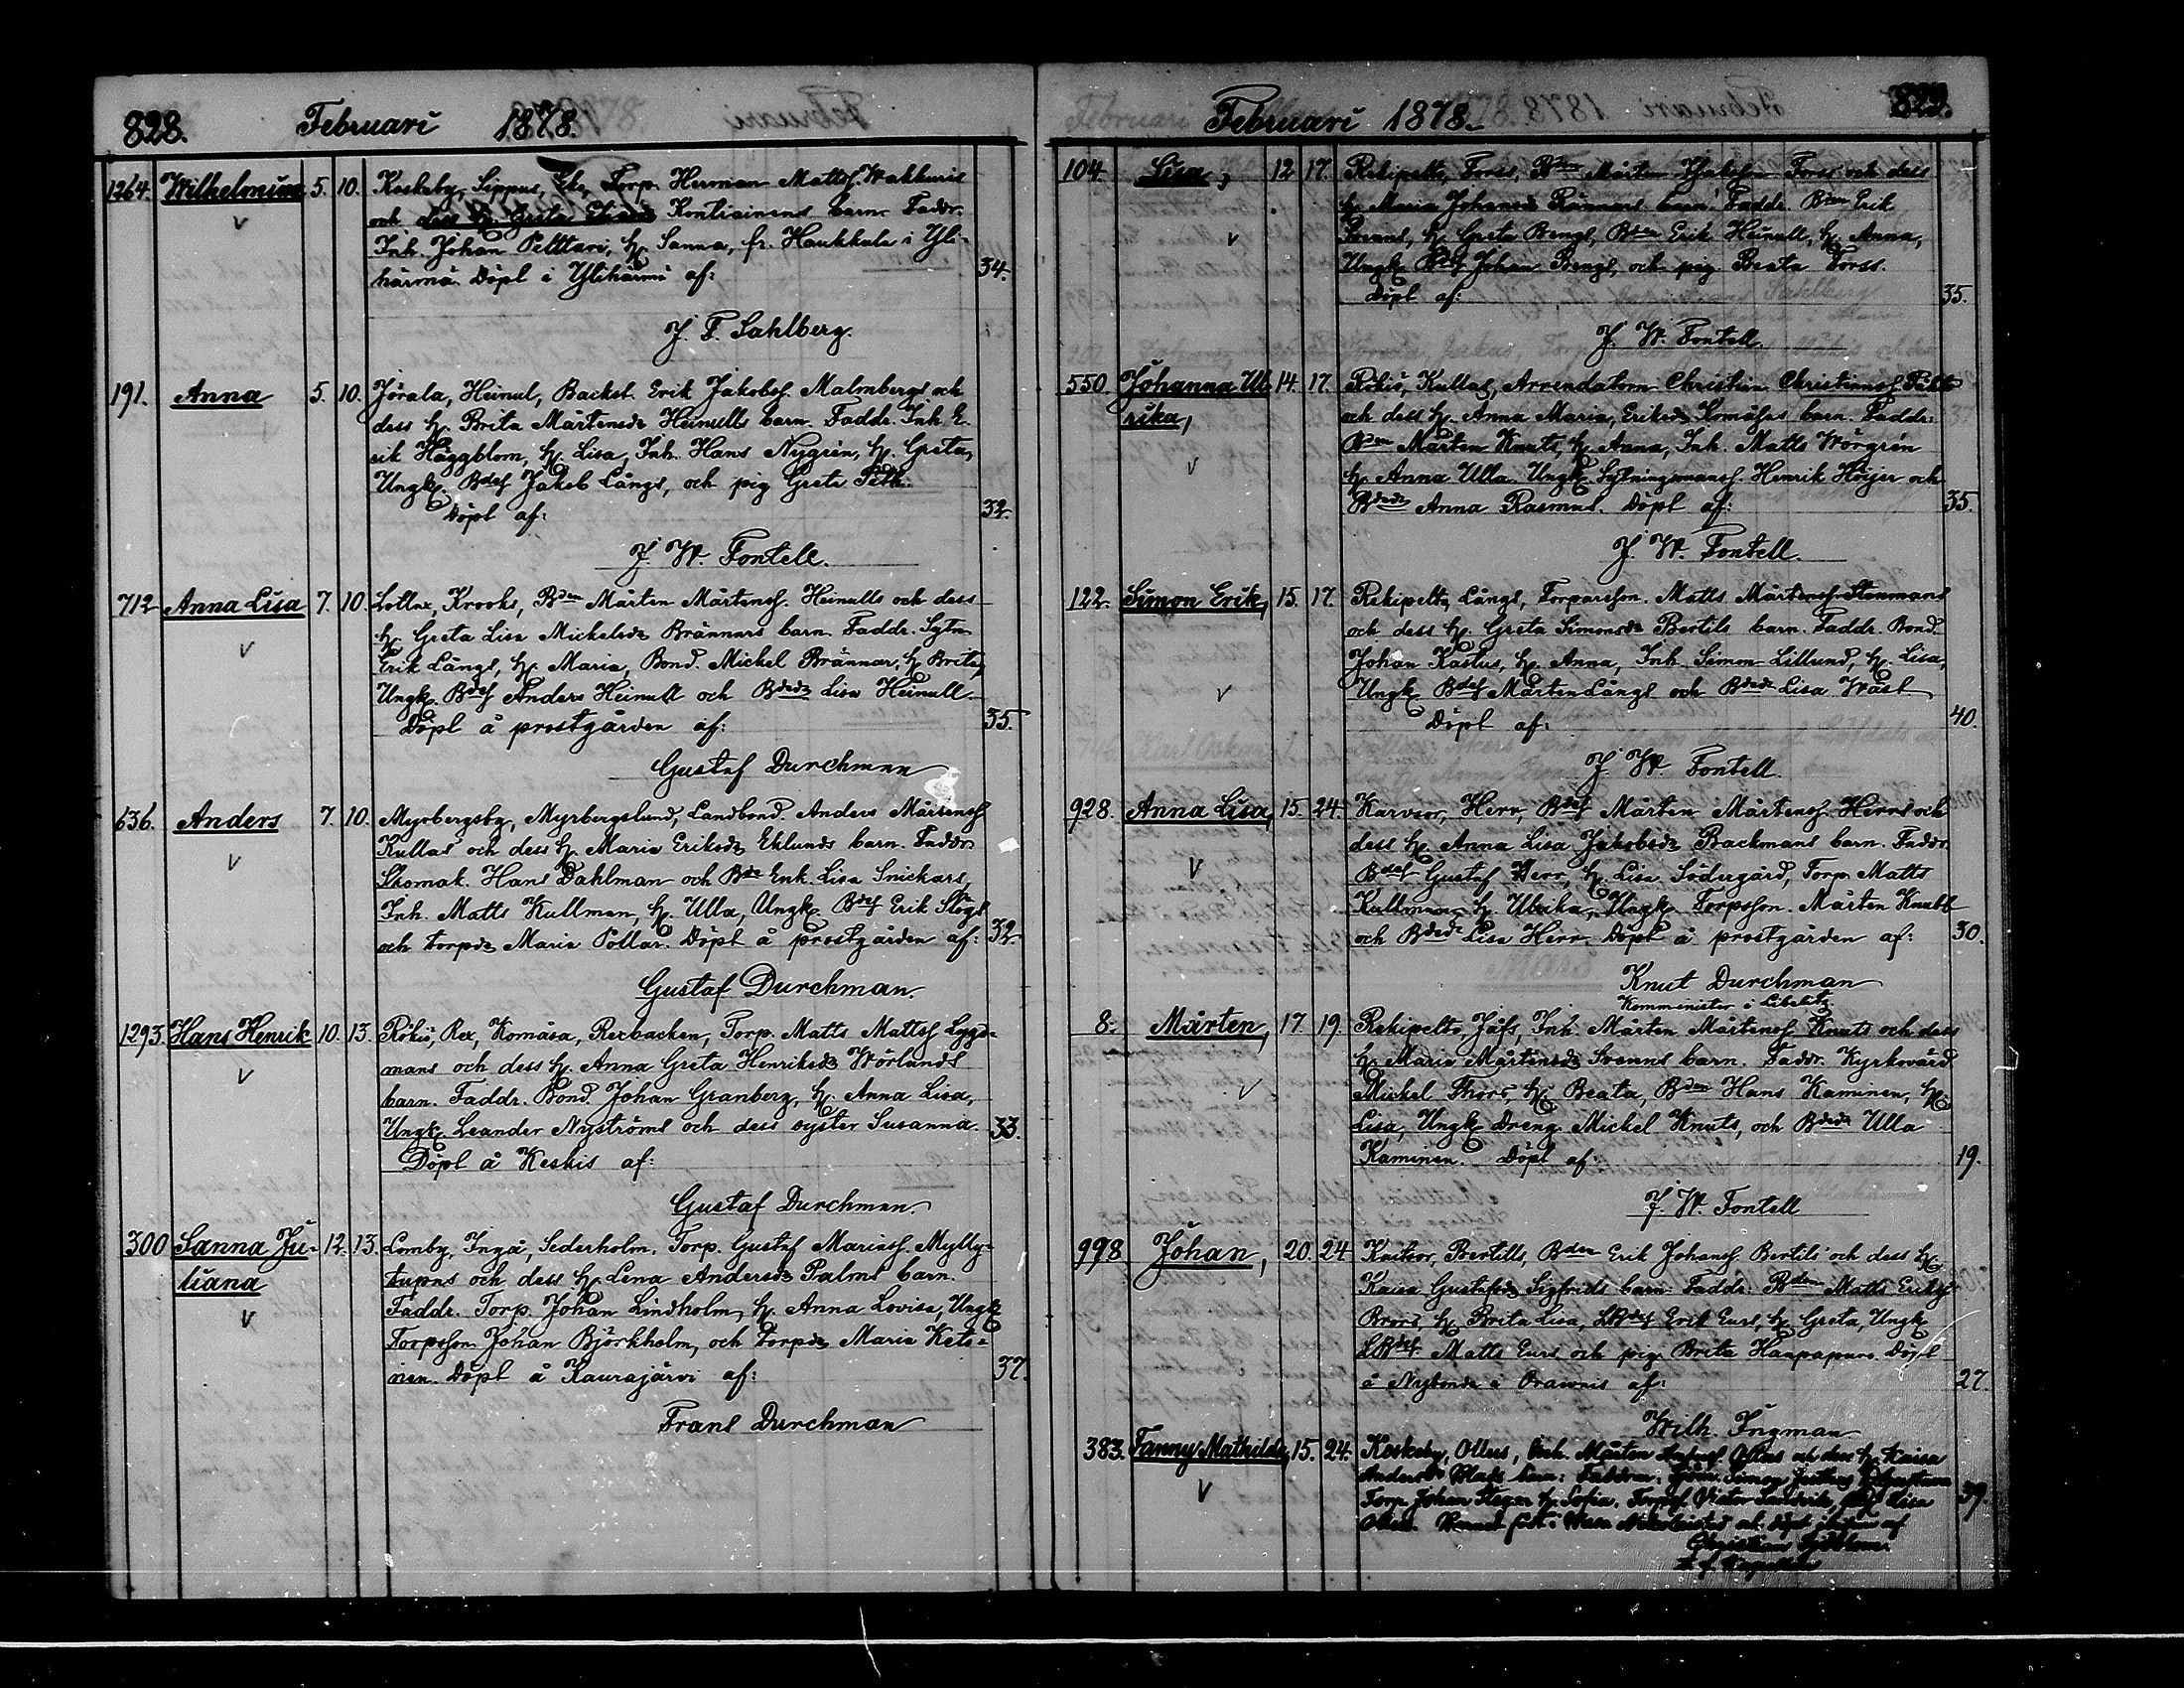 828. Februari 1878.
1264. Wilhelmina 5. 10. Keskeby, Sippus, Eke, Torp. Herman Mattsf. Wakkuris
och dess H. Greta Eliasdr Kontiainens barn. Faddr.
Inh. Johan Pelttari, H. Sanna, fr. Haukkala i Yli-
härmä. Döpt i Ylihärmä af: 34.
J. F. Sahlberg.
191. Anna 5. 10. Jörala, Heinul, Backst. Erik Jakobsf. Malmbergs och
dess H. Brita Mårtensdr Heinulls barn. Faddr. Inh. E-
rik Häggblom, H. Lisa, Inh. Hans Nygrén, H. Greta,
Ungk. Bdes Jakob Långs, och pig. Greta Peth.
Döpt af: 32.
J. W. Fontell.
712 Anna Lisa 7. 10. Lotlax, Krooks, Bden Mårten Mårtensf. Heinulls och dess
H. Greta Lisa Mickelsdr Brännars barn. Faddr. Sytn.
Erik Långs, H. Maria, Bond. Mickel Brännar, H. Brita,
Ungk. Bdes Anders Heinull och Bdedr Lisa Heinull.
Döpt å prostgården af: 35.
Gustaf Durchman
636. Anders 7. 10. Myrbergsby, Myrbergslund, Landbond. Anders Mårtensf
Kullas och dess H. Maria Eriksdr Eklunds barn. Faddr.
Skomak. Hans Dahlman och Bde Enk. Lisa Snickars,
Inh. Matts Kullman, H. Ulla, Ungk. Bdes Erik Slögs
och torpdr Maria Pollar. Döpt å prostgården af: 32.
Gustaf Durchman.
1293. Hans Henrik 10. 13. Rökiö, Rex, Komåsa, Rexbacken, Torp. Matts Mattsf Lygg-
mans och dess H. Anna Greta Henriksdr Wörlunds
barn. Faddr. Bond. Johan Granberg, H. Anna Lisa,
Ungk. Leander Nyströms och dess syster Susanna. 33.
Döpt å Keskis af:
Gustaf Durchman.
300 Sanna Ju- 12. 13. Lomby, Ingå, Sederholm, Torp. Gustaf Mariasf. Mylly-
liana tupas och dess H. Lena Andersdr Palms barn.
Faddr. Torp. Johan Lindholm, H. Anna Lovisa, Ungk.
Torpsson Johan Björkholm, och torpdr Maria Keto-
nen. Döpt å Kaurajärvi af: 37.
Frans Durchman
Februari 1878. 829.
104. Lisa, 12 17. Rekipelto, Forss, Bden Mårten Jakobson Forss och dess
H. Maria Johansdr Rännars barn. Faddr. Bden Erik
H. Greta Bengs, Bden Erik Heinull, H. Anna,
Ungk. Bdes Johan Bengs, och pig. Beata Forss.
Döpt af: 35.
J. W. Fontell.
550 Johanna Ul- 14. 17. Rökiö, Kullas, Arrendatorn Christian Christiansf.
rika, och dess H. Anna Maria, Eriksdr Komåsas barn. Faddr:
Bden Mårten Knuts, H. Anna, Inh. Matts Wörgrén
H. Anna Ulla. Ungk. Sytningsmansf. Henrik Höijer och
Bdedr Anna Rasmus. Döpt af: 35.
J. W. Fontell.
122. Simon Erik, 15. 17. Rekipelto, Långs, Torpareson. Matts Mårtensf. Stenmans
och dess H. Greta Simonsdr Bertils barn. Faddr. Bond.
Johan Kastus, H. Anna, Inh. Simon Lillund, H. Lisa,
Ungk. Bdes Mårten Långs och Bdedr Lisa Wäst
Döpt af: 40.
J. W. Fontell.
928. Anna Lisa, 15. 24. Karvsor, Herr, Bdes Mårten Mårtensf. Herrs och
dess H. Anna Lisa Jakobsdr Backmans barn. Faddr.
Bdes Gustaf Herr, H. Lisa Södergård, Torp. Matts
Kullman, H. Ulrika, Ungk. Torpsson. Mårten Knubb
och Bdedr Lisa Herr. Döpt å prostgården af: 30.
Knut Durchman
Komminister i Libelitz
8. Mårten, 17 19 Rekipelto, Jåfs, Inh. Mårten Mårtensf. Knuts och dess
H. Maria Mårtensdr Svenns barn. Faddr. Kyrkovärd.
Mickel Thors, H. Beata, Bden Hans Kaminen, H.
Lisa, Ungk. Dreng Mickel Knuts, och Bdedr Ulla
Kaminen. Döpt af: 19.
J. W. Fontell
998 Johan, 20. 24 Kaitsor, Bertills, Bden Erik Johansf. Bertils och dess H.
Kaisa Gustafsdr Sigfrids barn. Faddr. Bden Matts Eriksf
Brors, H. Brita Lisa, LBdes Erik Eurs, H. Greta, Ungk.
LBdes Matts Eurs och pig. Brita Haapapuro. Döpt
å Nybonde i Oravais af: 27.
Wilh. Ingman
383. Fanny Mathilda, 15. 24. Koskeby, Olless, Inh. Mårten Olles och dess H. Kaisa
Andersdr barn: Faddrar: Simon
Torp. Johan H. Sofia, Torpsf. Viktor Sandvik, pig. Lisa 39.
Olles. född i Wasa Nikolaistad och döpt af
Christian